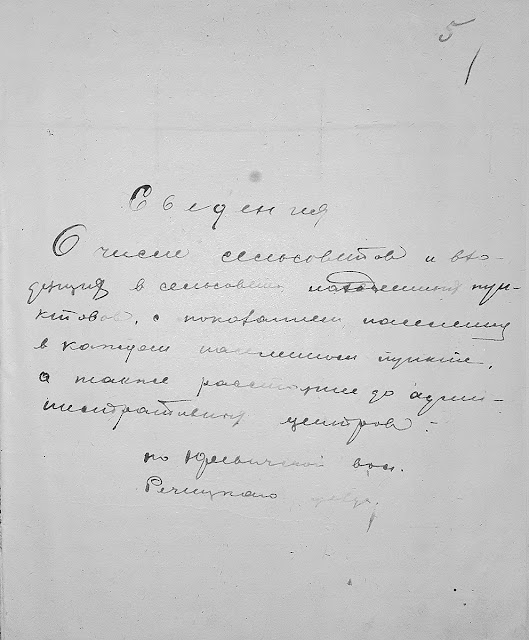 5
Сведения
О числе сельсоветов и вхо-
дящих в сельсоветы населенных пун-
ктов, с показанием населения
в каждом населенном пункте,
а также расстояние до админи-
стративных центров.
по Юревичской вол.
Речицкого уезда.